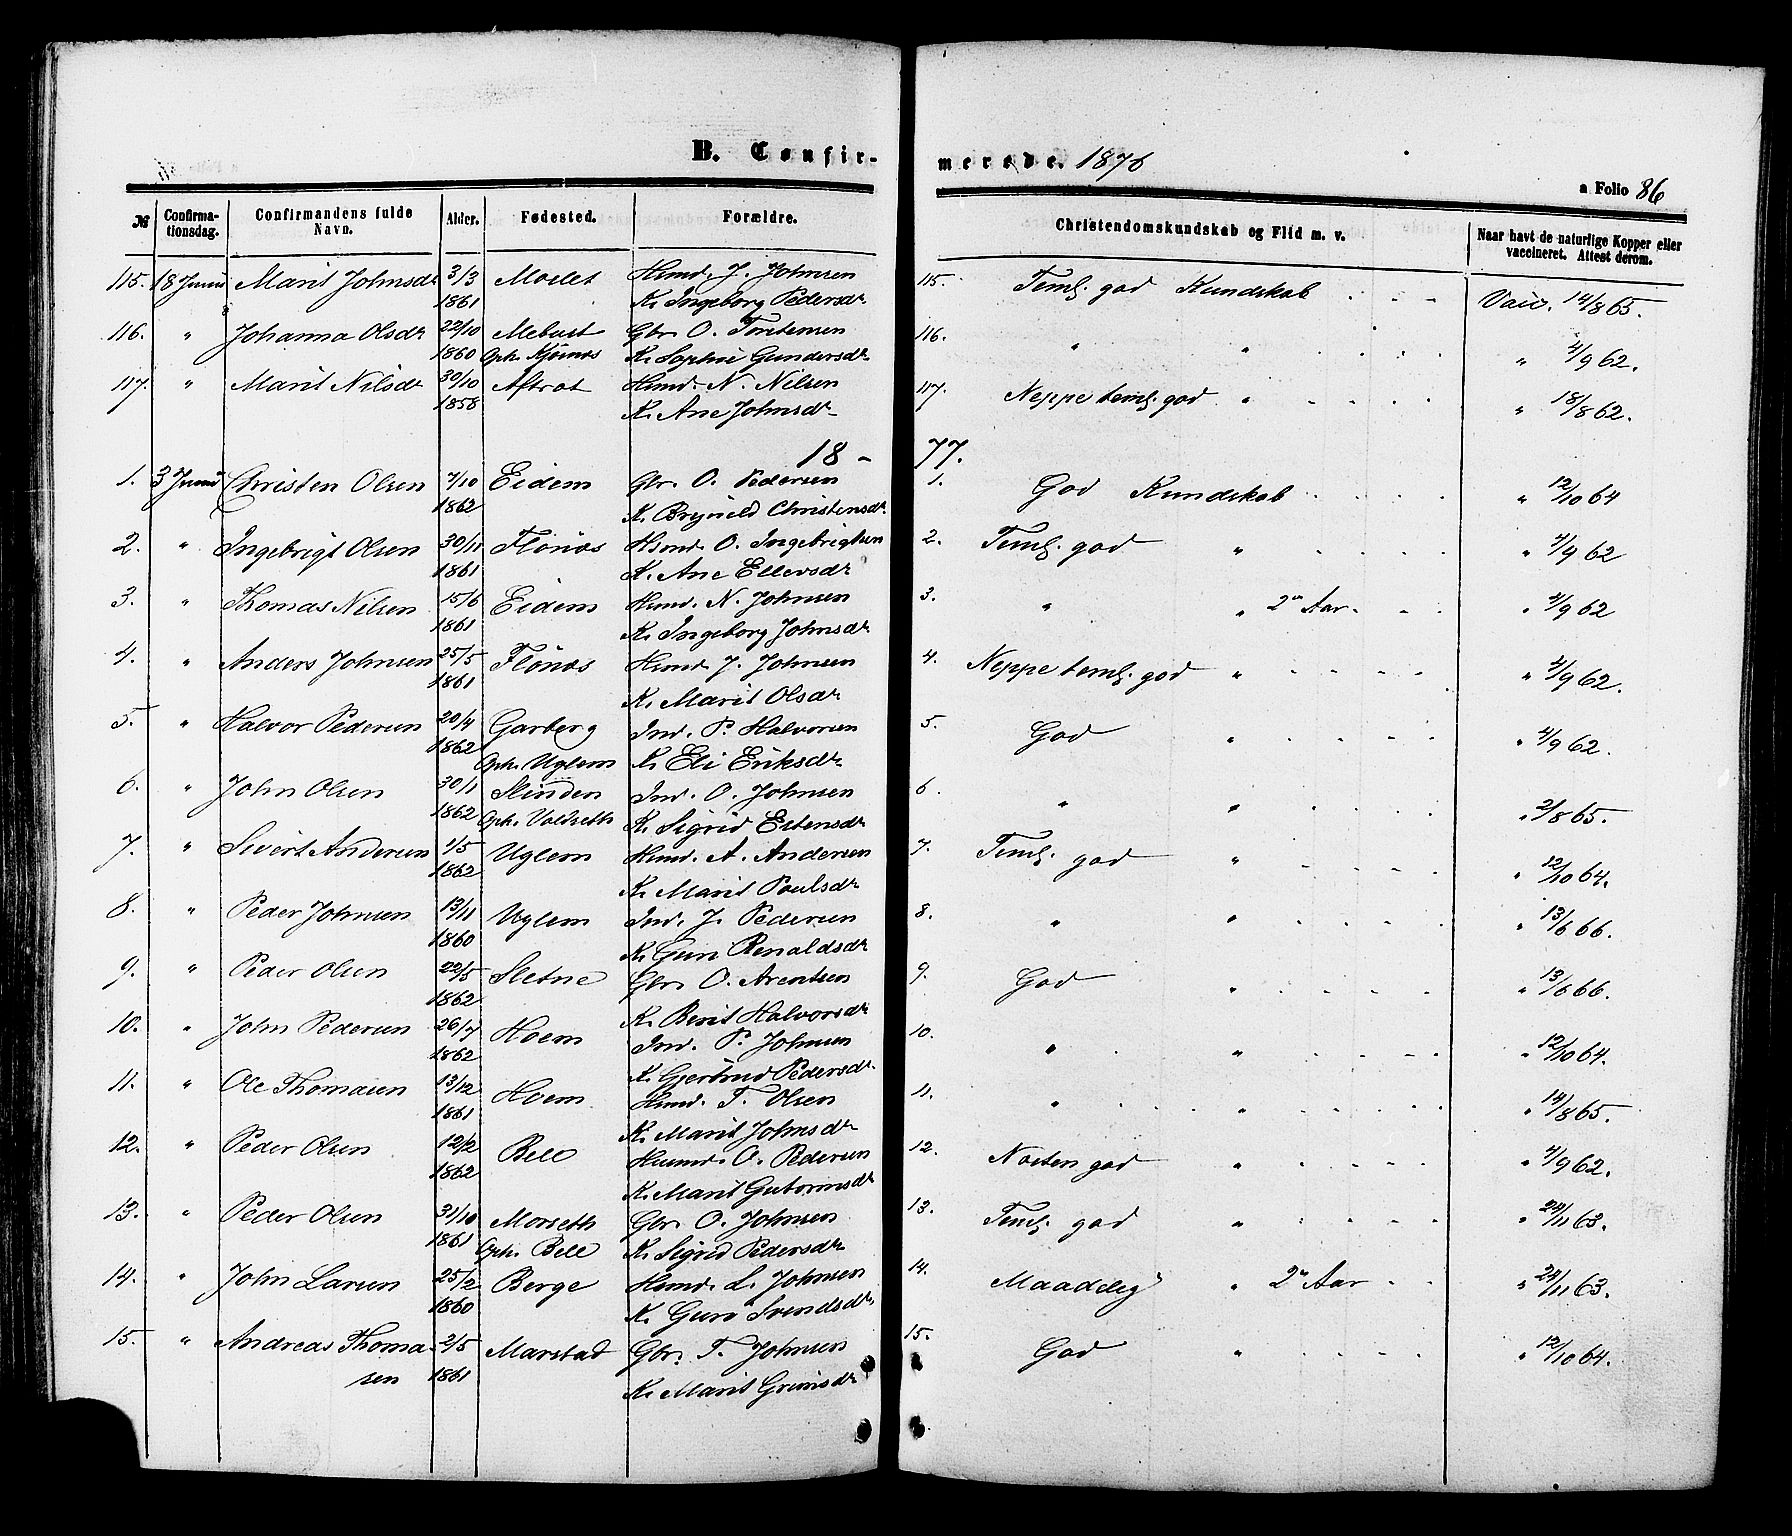 B. Confir-
merede. 1876
a Folio 86
№ Confirma-tionsdag. Confirmandens fulde Navn. Alder. Fødested. Forældre. Christendomskundskab og Flid m. v. Naar havt de naturlige Kopper eller vaccineret. Attest derom.
115. 18 Juni Marit Johnsdr 3/3 Moslet Husmd. J. Johnsen 115. Teml. god Kundskab Vacc. 14/8 65.
1861 K. Ingeborg Pedersdr
116. " Johanna Olsdr 22/10 Mebust Gbr. O. Torstensen 116. " " " 4/9 62.
1860 Oph. Kjösnæs K. Sophie Gundersdr
117. " Marit Nilsdr 30/10 Aftret Husmd. N. Nilsen 117. Neppe teml. god " " 18/8 62.
1858 K. Ane Johnsdr
18-77.
1. 3 Juni Christen Olsen 7/10 Eidem Gbr. O. Pedersen 1. God Kundskab " 12/10 64
1862 K. Brynild Christensdr
2. " Ingebrigt Olsen 30/11 Flönæs Husmd. O. Ingebrigtsen 2. Teml. god " " 4/9 62
1861 K. Ane Ellevsdr
3. " Thomas Nilsen 15/6 Eidem Husmd. N. Johnsen 3. " " 2et Aar. " 4/9 62
1861 K. Ingeborg Johnsdr
4. " Anders Johnsen 25/5 Flönæs Husmd. J. Johnsen 4. Neppe teml. god " " 4/9 62.
1861 K. Marit Olsdr
5. " Halvor Pedersen 20/4 Garberg Ind. P. Halvorsen 5. God " " 4/9 62.
1862 Oph. Uglem K. Eli Eriksdr
6. " John Olsen 30/1 Slinden Ind. O. Johnsen 6 " " " 2/8 65.
1862 Oph. Valdseth K. Sigrid Estensdr
7. " Sivert Andersen 1/5 Uglem Husmd. A. Andersen 7. Teml. god " " 12/10 64.
1862 K. Marit Paulsdr
8. " Peder Johnsen 13/11 Uglem Ind. J. Pedersen 8. " " " 13/6 66.
1860 K. Guri Renaldsdr
9. " Peder Olsen 22/5 Sletne Gbr. O. Arentsen 9. God " " 13/6 66.
1862 K. Berit Halvorsdr
10. " John Pedersen 26/7 Hoem Ind. P. Johnsen 10. " " " 12/10 64.
1862 K. Gjertrud Pedersdr.
11. " Ole Thomasen 13/12 Hoem Husmd. T. Olsen 11. " " " 14/8 65.
1861 K. Marit Johnsdr
12. " Peder Olsen 12/2 Bell Husmd. O. Pedersen 12. Næsten god " " 4/9 62.
1862 K. Marit Guttormsdr
13. " Peder Olsen 31/10 Morseth Gbr. O. Johnsen 13. Teml. god " " 24/11 63.
1861 Oph. Bell K. Sigrid Pedersdr
14. " John Larsen 25/2 Berge Husmd. L. Johnsen 14. Maadelig " 2et Aar " 24/11 63.
1860 K. Guro Svendsdr
15. " Andreas Thoma- 2/5 Marstad Gbr. T. Johnsen 15. God " " 12/10 64.
sen 1861 K. Marit Grimsdr